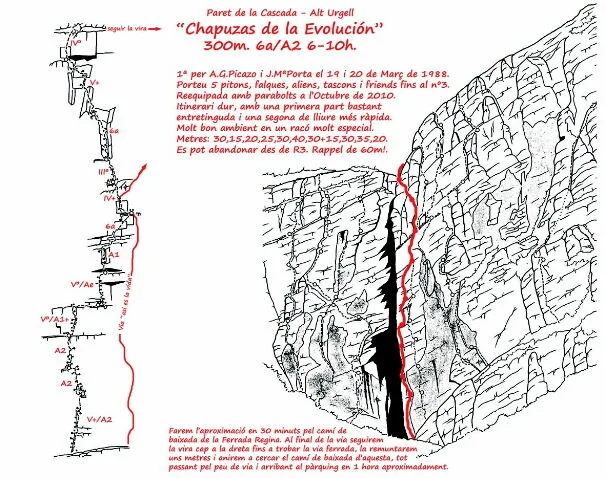 Paret de la Cascada - Alt Urgell
"Chapuzas de la Evolución"
300m. 6a/A2 6-10h.
1ª per A.G.Picazo i J.MªPorta el 19 i 20 de Març de 1988.
Porteu 5 pitons, falques, aliens, tascons i friends fins al nº3.
Reequipada amb parabolts a l'Octubre de 2010.
Itinerari dur, amb una primera part bastant
entretinguda i una segona de lliure més ràpida.
Molt bon ambient en un racó molt especial.
Metres: 30,15,20,25,30,40,30+15,30,35,20.
Es pot abandonar des de R3. Rappel de 60m!.
seguir la vira
IVº
V+
6a
IIIº
IV+
6a
A1
Vº/Ae
Vº/A1+
A2
A2
V+/A2
Via "así es la vida"
Farem l'aproximació en 30 minuts pel camí de
baixada de la Ferrada Regina. Al final de la via seguirem
la vira cap a la dreta fins a trobar la via ferrada, la remuntarem
uns metres i anirem a cercar el camí de baixada d'aquesta, tot
passant pel peu de via i arribant al pàrquing en 1 hora aproximadament.